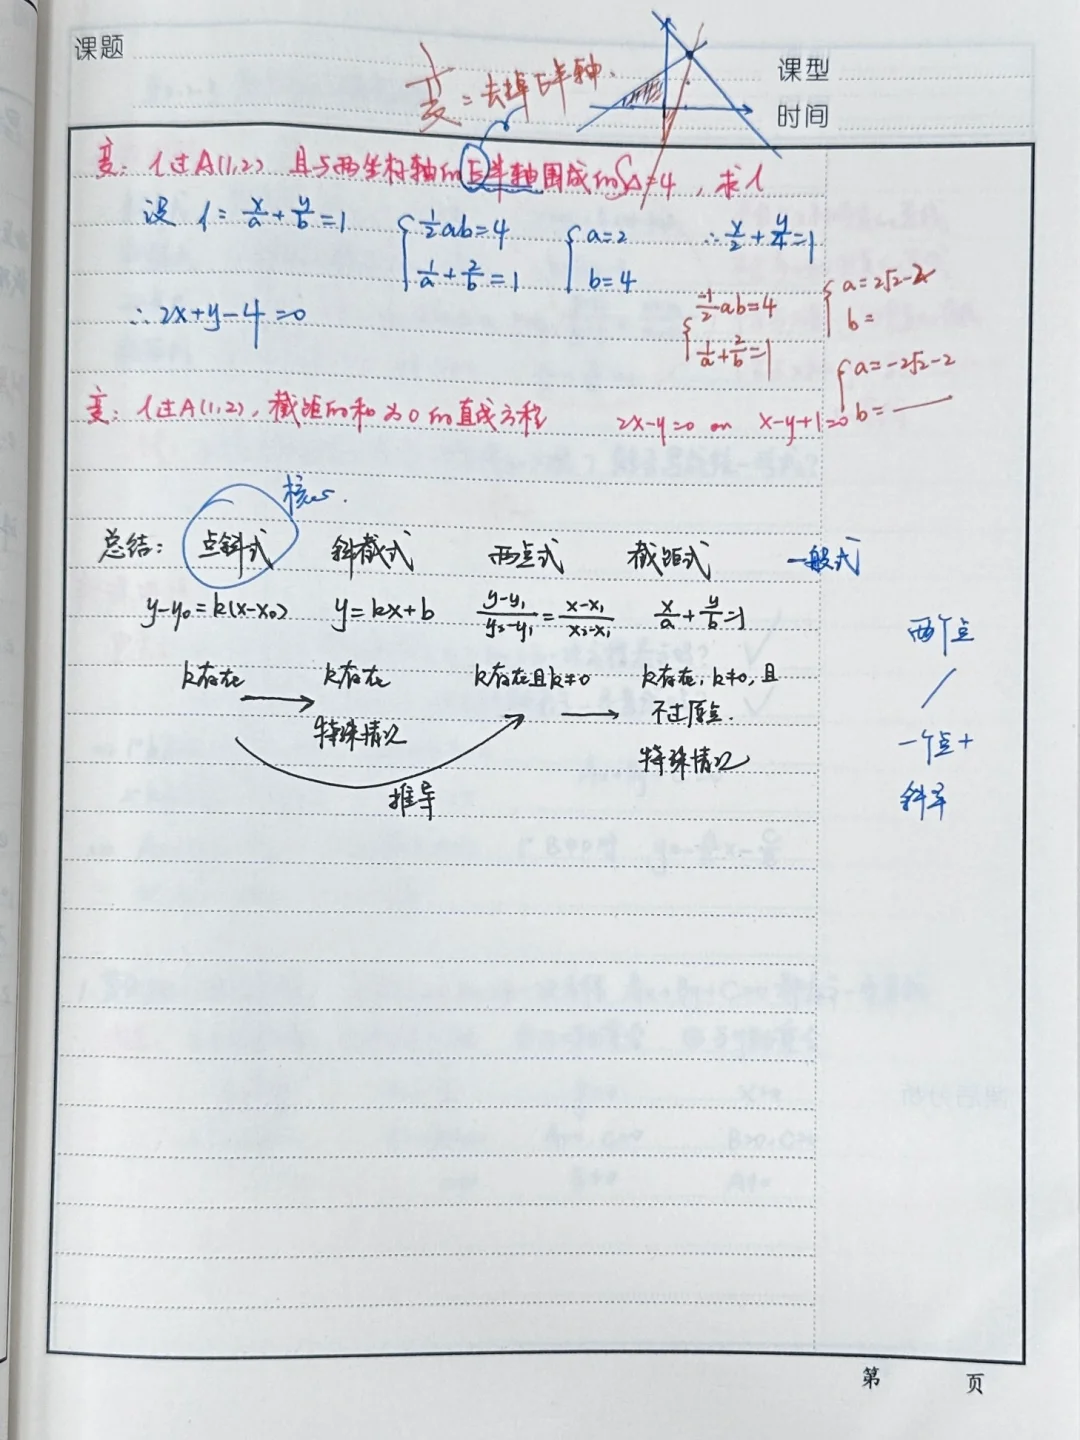 课题
课型
时间
变：去掉正半轴.
变：l过A(1,2) 且与两坐标轴的正半轴围成的S△=4，求l
设 l：x/a + y/b = 1 { 1/2 ab=4 1/a + 2/b = 1 { a=2 b=4 ∴ x/2 + y/4 = 1
∴ 2x+y-4=0
{ -1/2 ab=4 1/a + 2/b = 1 { a=2√2-2 b=
{ a=-2√2-2 b=
变：l过A(1,2)，截距的和为0的直线方程 2x-y=0 or x-y+1=0
核心.
总结： 点斜式 斜截式 两点式 截距式 一般式
y-y₀=k(x-x₀) y=kx+b (y-y₁)/(y₂-y₁) = (x-x₁)/(x₂-x₁) x/a + y/b = 1
k存在 k存在 k存在且k≠0 k存在，k≠0，且
不过原点.
特殊情况
特殊情况
推导
两个点
/
一个点+
斜率
第 页